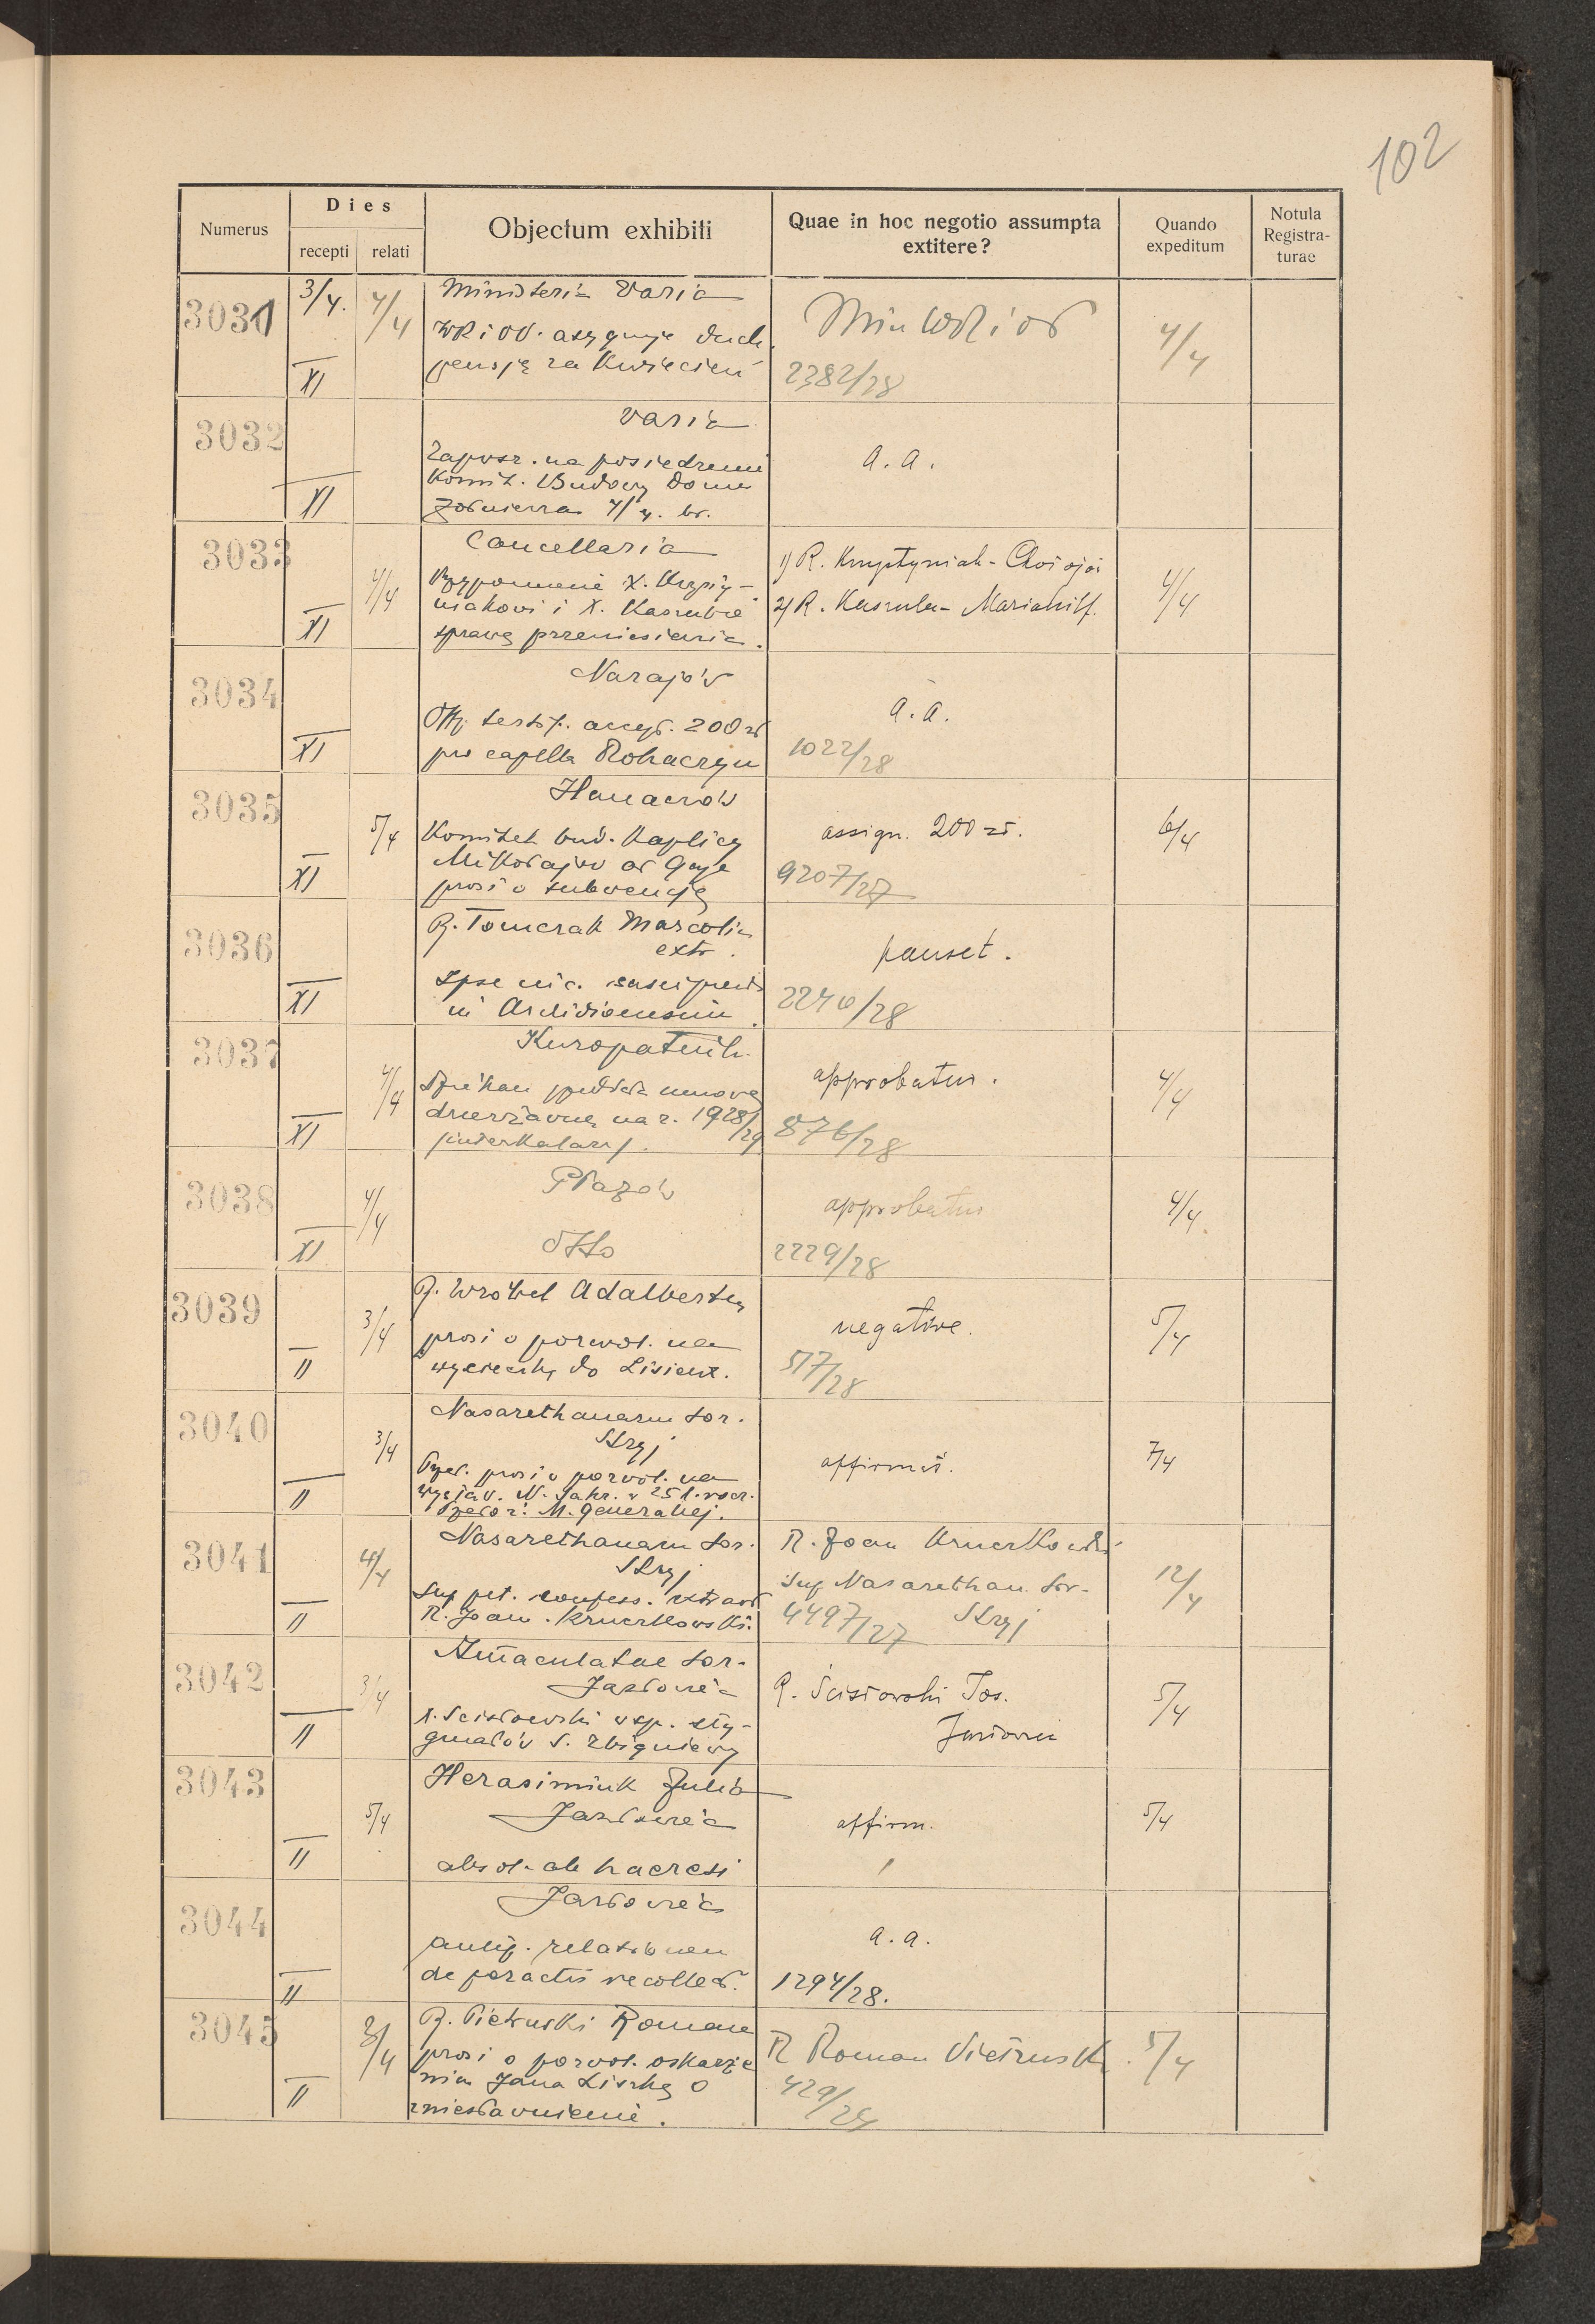 102
Numerus
Dies
recepti relati
Objectum exhibiti
Quae in hoc negotio assumpta
extitere?
Quando
expeditum
Notula
Registra-
turae
3031
3/4. 4/4
XI
Ministeria Varia
WR i OP. asygnuje duch.
pensję za Kwiecień
Min WR i OP
2382/28
4/4
3032
XI
Varia
Zaprosz. na posiedzenie
Komit. Budowy Domu
Żołnierza 4/4. br.
a. a.
3033
4/4
XI
Cancellaria
Przypomnienie X. Krzpty-
niakowi i X. Kasrubie
sprawę przeniesienia.
1) R. Krzptyniak -
2) R. Kasruba - Mariahilf.
4/4
3034
XI
Narajów
Off. testif. accept. 200 zł
pro capella Rohaczyn
a. a.
1022/28
3035
5/4
XI
Hanaczów
Komitet bud. Kaplicy
Mikołajów
prosi o subwencję
assign. 200 zł.
9207/27
6/4
3036
XI
R. Tomczak Marcolin
extr.
Ipse
in Archidioecesim.
pauset.
2240/28
3037
4/4
XI
Kuropatnik.
Dziekan przedkła umowę
dzierżawną na r. 1928/29
/interkalarz/.
approbatur.
876/28
4/4
3038
4/4
XI
Płazów
dtto
approbatur
2229/28
4/4.
3039
3/4
II
R. Wróbel Adalbertus
prosi o pozwol. na
wycieczkę do Lisieux.
negative.
517/28
5/4
3040
3/4
II
Nasarethanarum sor.
Stryj
Przeł. prosi o pozwol. na
wystaw. N. Sakr. w 25 l. rocz.
Przełoż. M. Generalnej.
affirmat.
7/4
3041
4/4
II
Nasarethanarum sor.
Stryj
Sup. pet. confess. extraord
R. Joan. Krucrkowski.
R. Joan Krucrkowski
Sup. Nasarethan. sor-
Stryj
4497/27
12/4
3042
3/4
II
Immaculatae sor.
Jazłowiec
X. Scisłowski w sp. sty-
gmatów S. Zbigniewy
R. Ścisłowski Jos.
Jazłowiec
5/4
3043
5/4
II
Herasimiuk Julia
Jazłowiec
absol. ab haeresi
affirm.
5/4
3044
II
Jazłowiec
relationem
de peractis recollect.
a. a.
1294/28.
3045
3/4
II
R. Pietruski Roman
prosi o pozwol. oskarże
nia Jana Liszkę o
zniesławienie.
R Roman Pietruski
429/28
5/4